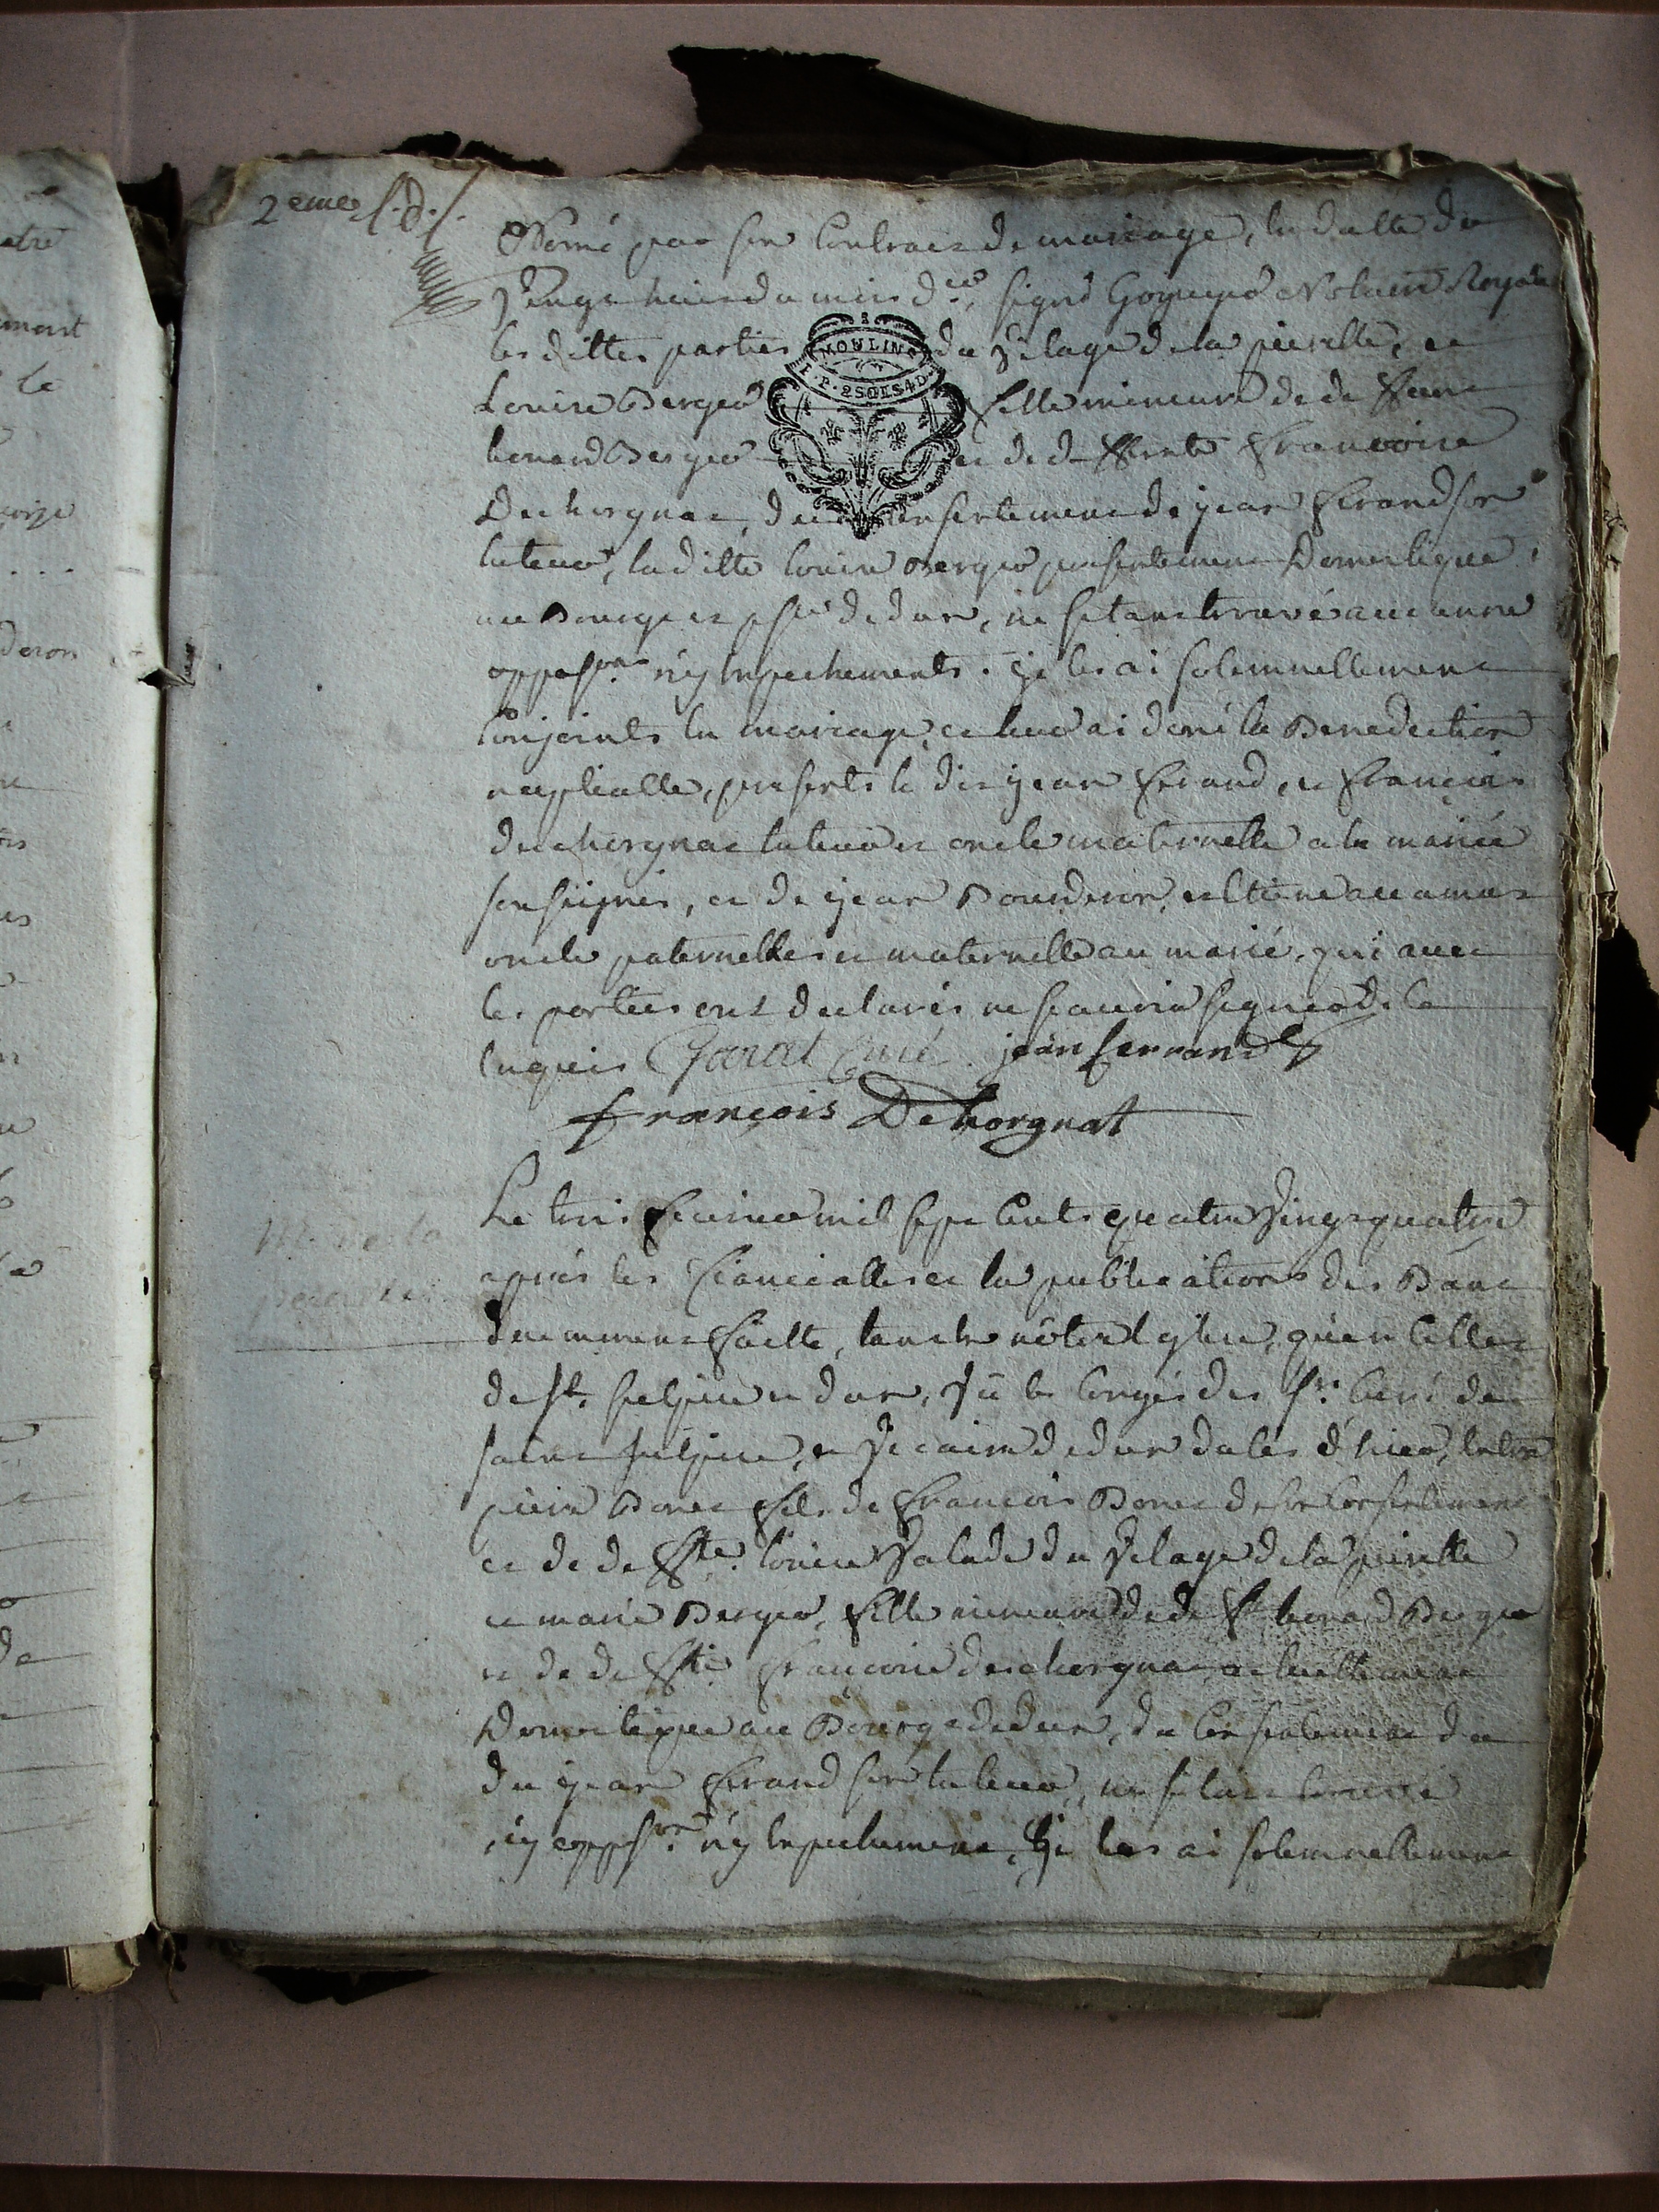 2eme f. d.
Doné par son Contract de mariage, en datte du
vingt huit du mois der, signé Goguyer Notaire Royale
les dittes parties du vilage de la peirelle, et
MOULINS
2SOLS4D
Louise Berger fille mineure de de funt
leonard Berger et de de ffunte francoise
Dechorgnat, du consentement de jean ferrand son
tuteur, la ditte louise Berger presentement Domestique
au Bourg et psse de dun, ne s'etant trouvé aucunne
opposon n'y empechements. je les ai solemnellement
Conjoints en mariage, et leur ai doné la Benediction
nuptialle, presents le dit jean ferrand, et François
dechorgnat tuteur et oncle maternelle a la mariée
soussignés, et de jean Bourderon, et
oncle paternelle et maternelle au marié, qui avec
les parties ont declarés ne scavoir signer de ce
enquis Garat Curé jean ferrand
françois Dechorgnat
Le trois fevrier mil sept Cents quatre vingt quatre
après les fiancialles et la publications des Banc
duement faitte, tant en nôtre Eglise, qu'en Celles
de St. sulpice et dun, vû les Congés des srs Curé de
saint sulpice, et vicaire de dun datés d'hier, entre
piere Bonet fils de François Bonet de son Consentement
et de de ffte louise valade du vilage de la peirelle
et marie Berger, fille mineure de de ft leonard Berger
et de de ffte françoise dechorgnat actuellement
Domestique au Bourg de dun, du Consentement du
du jean ferrand son tuteur, ne s'etant trouvé
n'y opposon n'y empechement, je les ai solemnellement